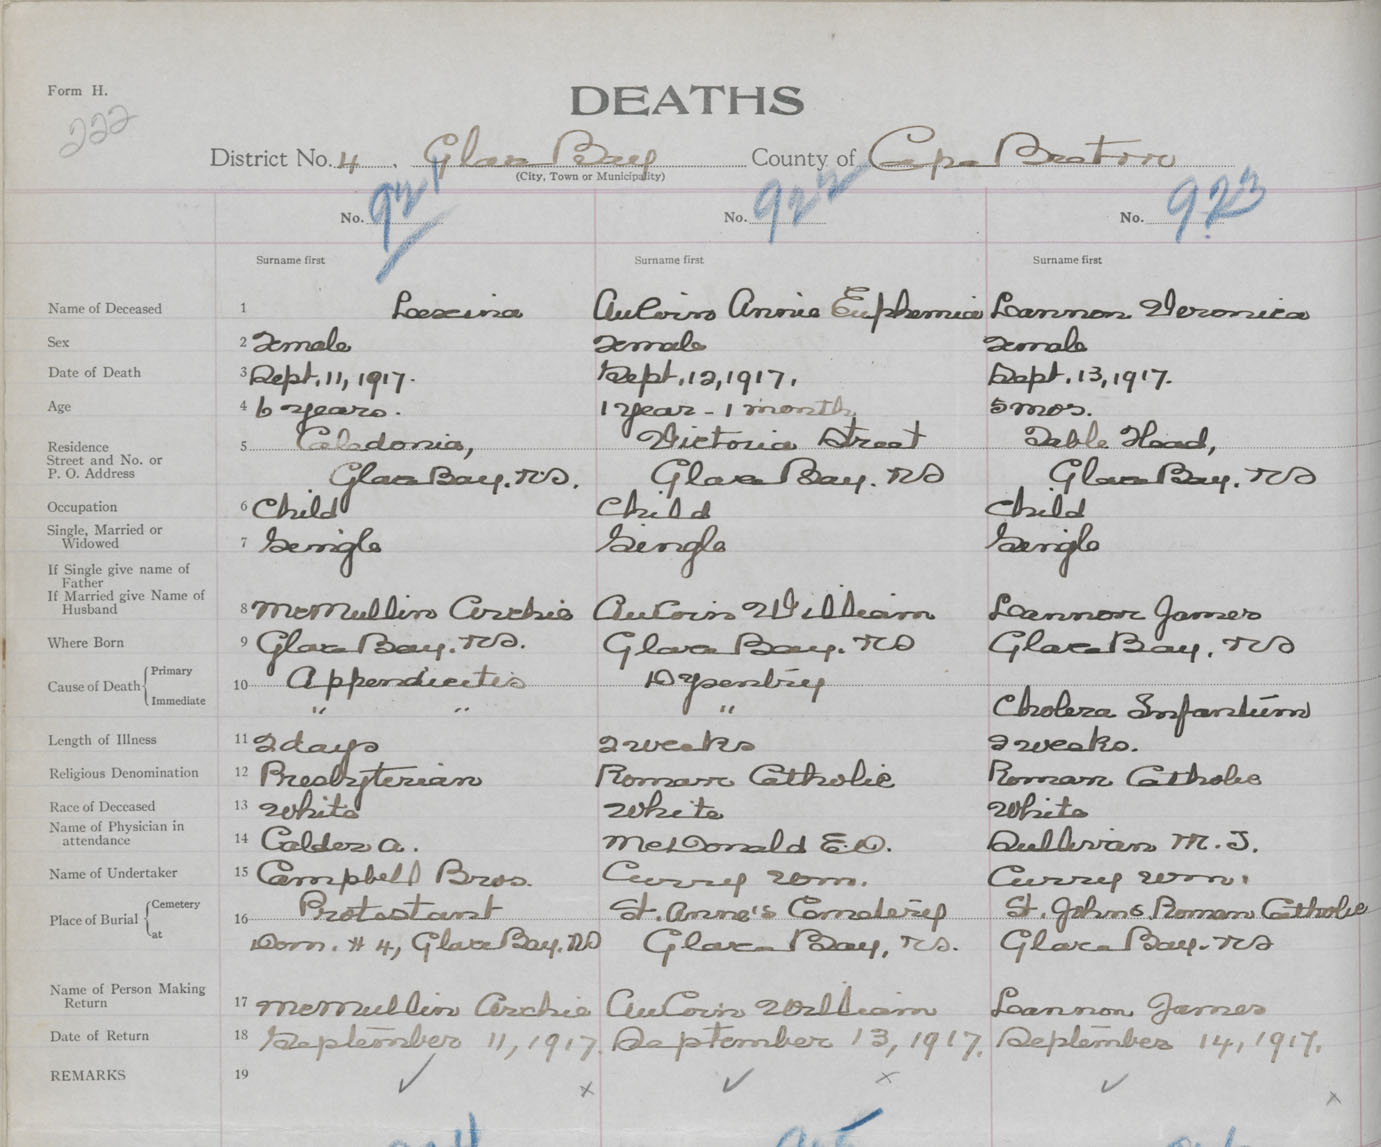 Form H.
222
DEATHS
District No. 4. Glace Bay County of Cape Breton
(City, Town or Municipality)
No. 921 No. 922 No. 923
Surname first Surname first Surname first
Name of Deceased 1 Lexina AuCoin Annie Euphemia Lannon Veronica
Sex 2 Female Female Female
Date of Death 3 Sept. 11, 1917. Sept. 12, 1917. Sept. 13, 1917.
Age 4 6 years. 1 year - 1 month 5 mos.
Residence 5 Caledonia, Victoria Street Table Head,
Street and No. or
P. O. Address Glace Bay. NS. Glace Bay. NS Glace Bay. NS
Occupation 6 Child Child Child
Single, Married or
Widowed 7 Single Single Single
If Single give name of
Father
If Married give Name of
Husband 8 McMullin Archie AuCoin William Lannon James
Where Born 9 Glace Bay. NS. Glace Bay. NS Glace Bay, NS
Cause of Death Primary 10 Appendicitis Dysentry
Immediate " " " Cholera Infantum
Length of Illness 11 2 days 2 weeks 2 weeks.
Religious Denomination 12 Presbyterian Roman Catholic Roman Catholic
Race of Deceased 13 White White White
Name of Physician in
attendance 14 Calder A. McDonald E.D. Sullivan M. J.
Name of Undertaker 15 Campbell Bros. Curry Wm. Curry Wm.
Place of Burial Cemetery 16 Protestant St. Anne's Cemetery St. Johns Roman Catholic
at Dom. # 4, Glace Bay. NS Glace Bay, NS. Glace Bay. NS
Name of Person Making
Return 17 McMullin Archie AuCoin William Lannon James
Date of Return 18 September 11, 1917. September 13, 1917. September 14, 1917.
REMARKS 19 ✓ x ✓ x ✓ x